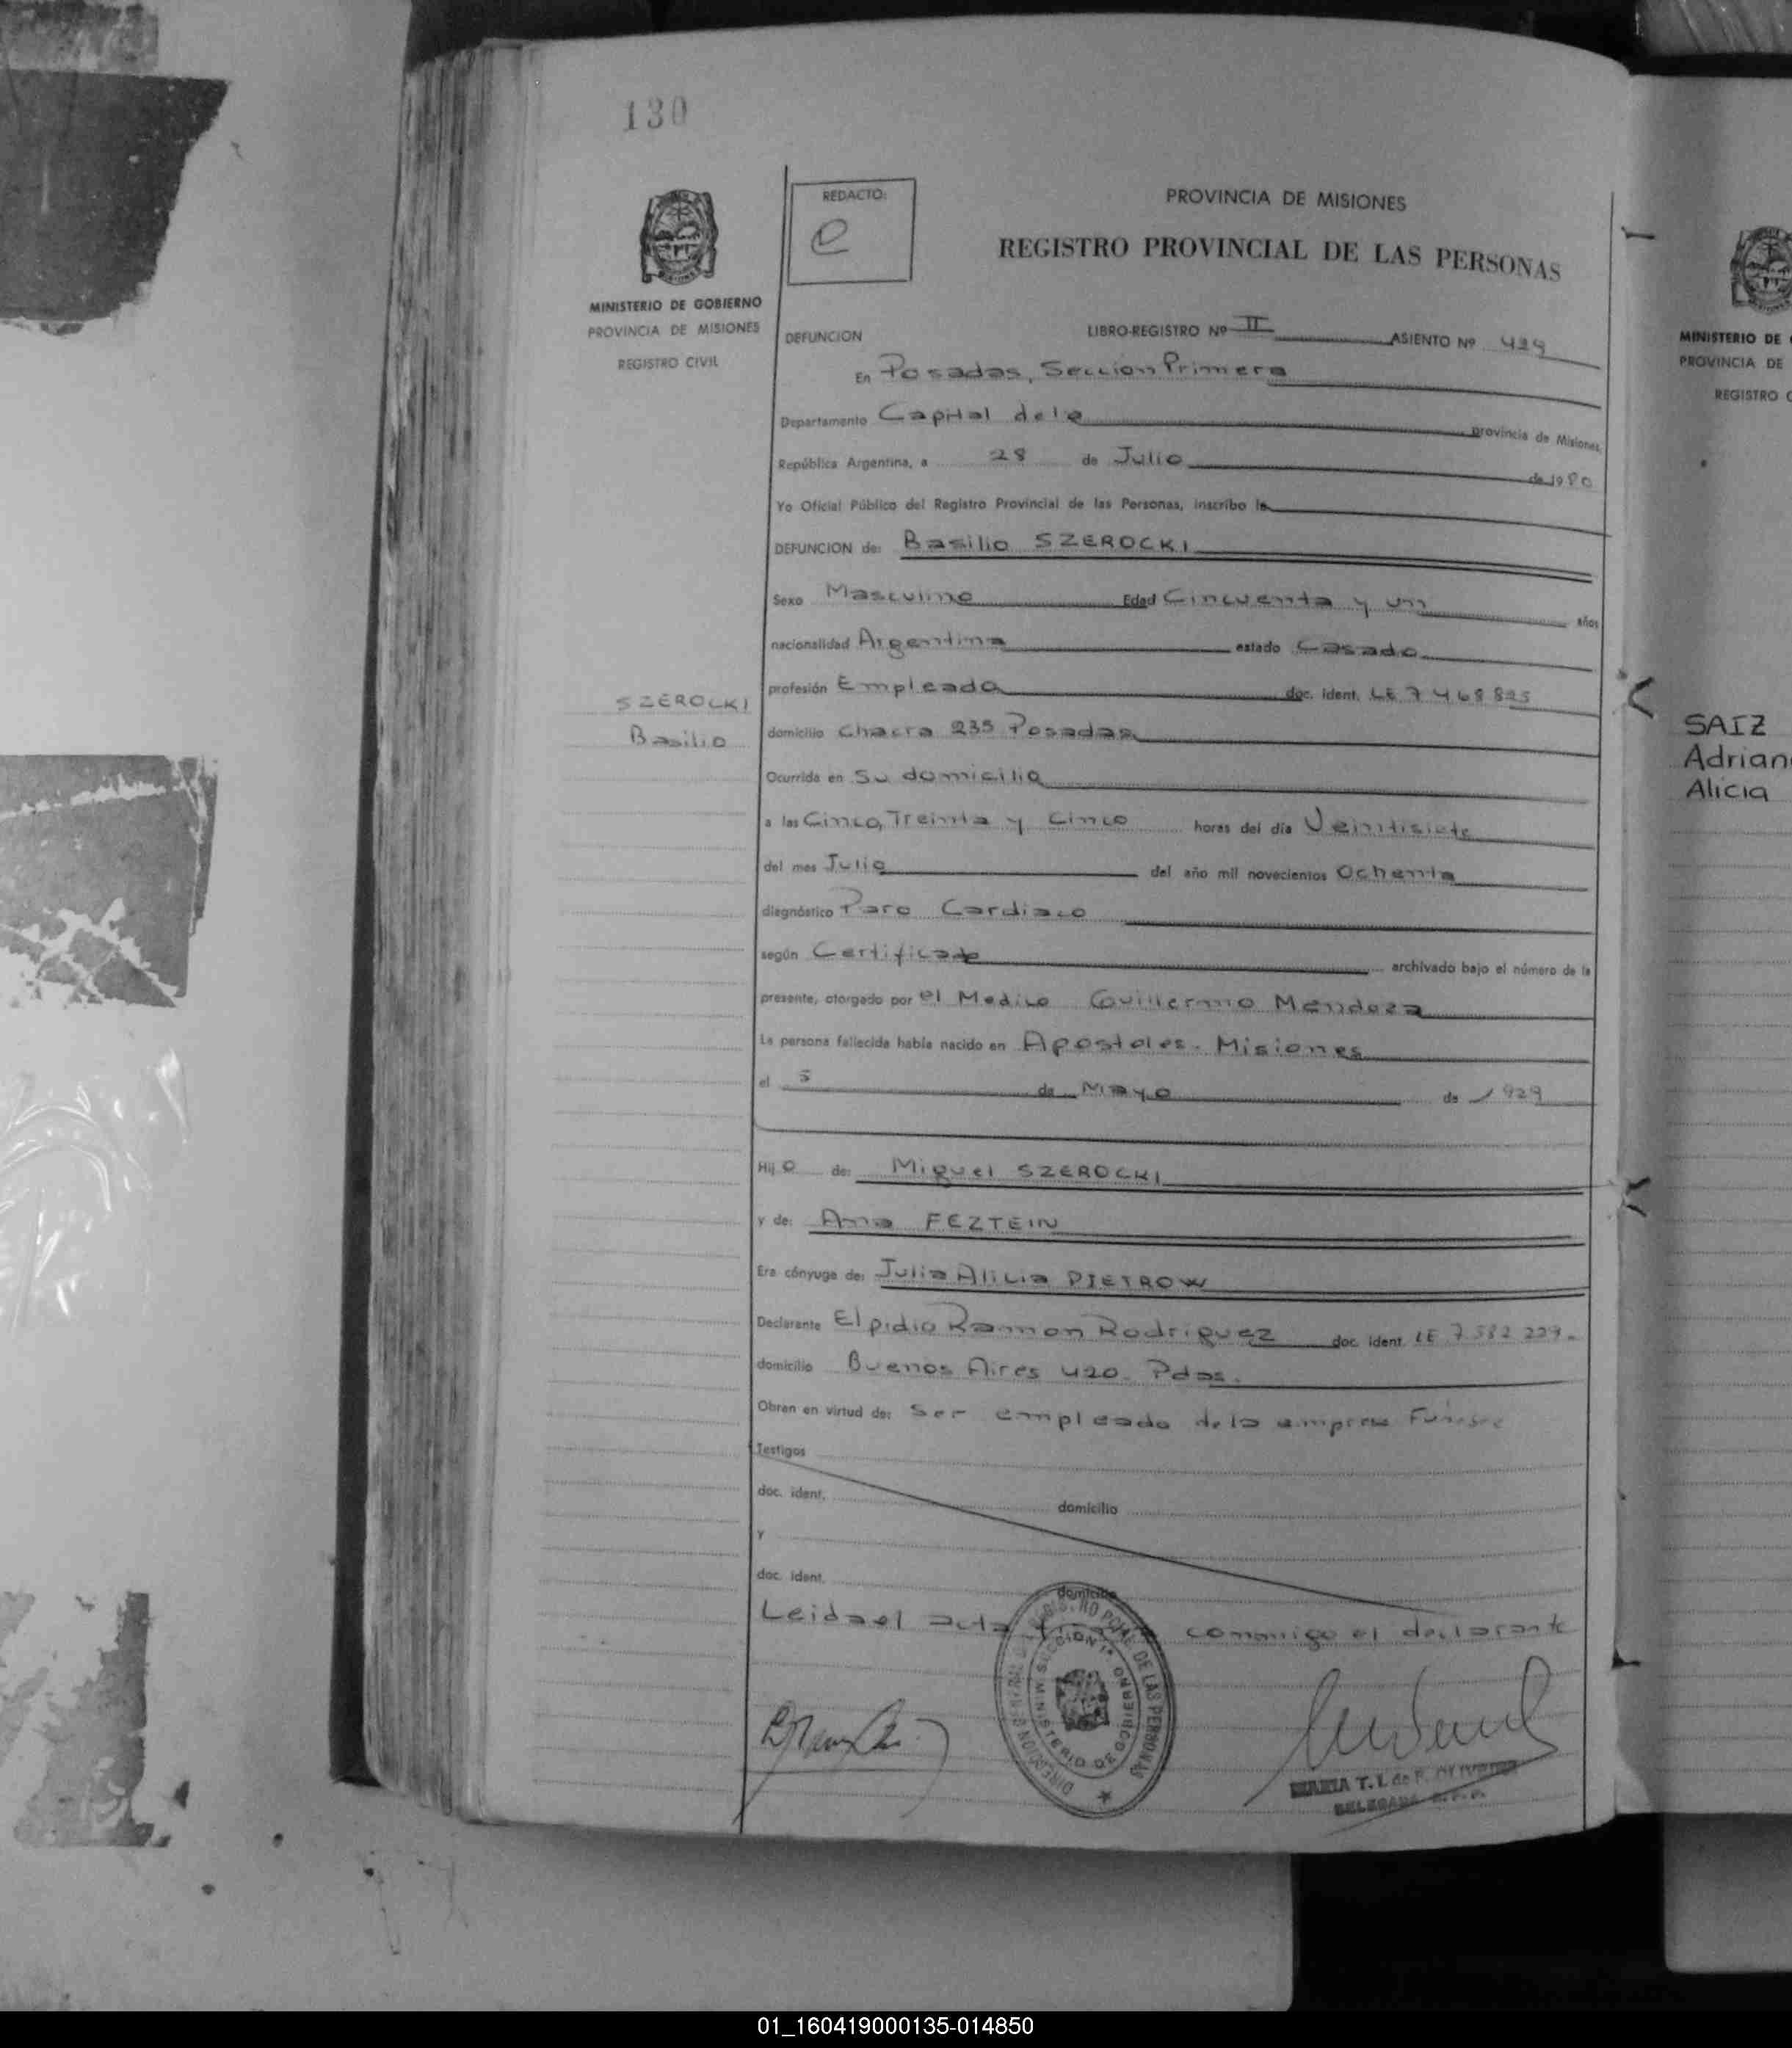 130
MINISTERIO DE GOBIERNO
PROVINCIA DE MISIONES
REGISTRO CIVIL
SZEROCKI
Basilio
REDACTO:
e
PROVINCIA DE MISIONES
REGISTRO PROVINCIAL DE LAS PERSONAS
DEFUNCION LIBRO-REGISTRO Nº II ASIENTO Nº 429
En Posadas, Sección Primera
Departamento Capital de la provincia de Misiones,
República Argentina, a 28 de Julio de 1980
Yo Oficial Público del Registro Provincial de las Personas, inscribo la
DEFUNCION de: Basilio SZEROCKI
Sexo Masculino Edad Cincuenta y un años
nacionalidad Argentina estado Casado
profesión Empleado doc. ident. LE 7 468 825
domicilio Chacra 235 Posadas
Ocurrida en Su domicilio
a las Cinco, Treinta y Cinco horas del día Veintisiete
del mes Julio del año mil novecientos Ochenta
diagnóstico Paro Cardiaco
según Certificado archivado bajo el número de la
presente, otorgado por el Medico Guillermo Mendoza
La persona fallecida había nacido en Apostoles - Misiones
el 5 de Mayo de 1929
Hij o de: Miguel SZEROCKI
y de: Ana FEZTEIN
Era cónyuge de: Julia Alicia PIETROW
Declarante Elpidio Ramon Rodriguez doc. ident. LE 7.582 229.
domicilio Buenos Aires 420 - Pdas.
Obran en virtud de: Ser empleado de la empresa Funebre
Testigos
doc. ident. domicilio
y
doc. ident. domicilio
Leida el acta conmigo el declarante
DIRECCION GENERAL DE REGISTRO PCIAL DE LAS PERSONAS
MINISTERIO DE GOBIERNO SECCION 1ª
MARIA T. I. de F. OLIVEIRA
DELEGADA R. P. P.
MINISTERIO DE
PROVINCIA DE
REGISTRO C
SAIZ
Adrian
Alicia
01_160419000135-014850